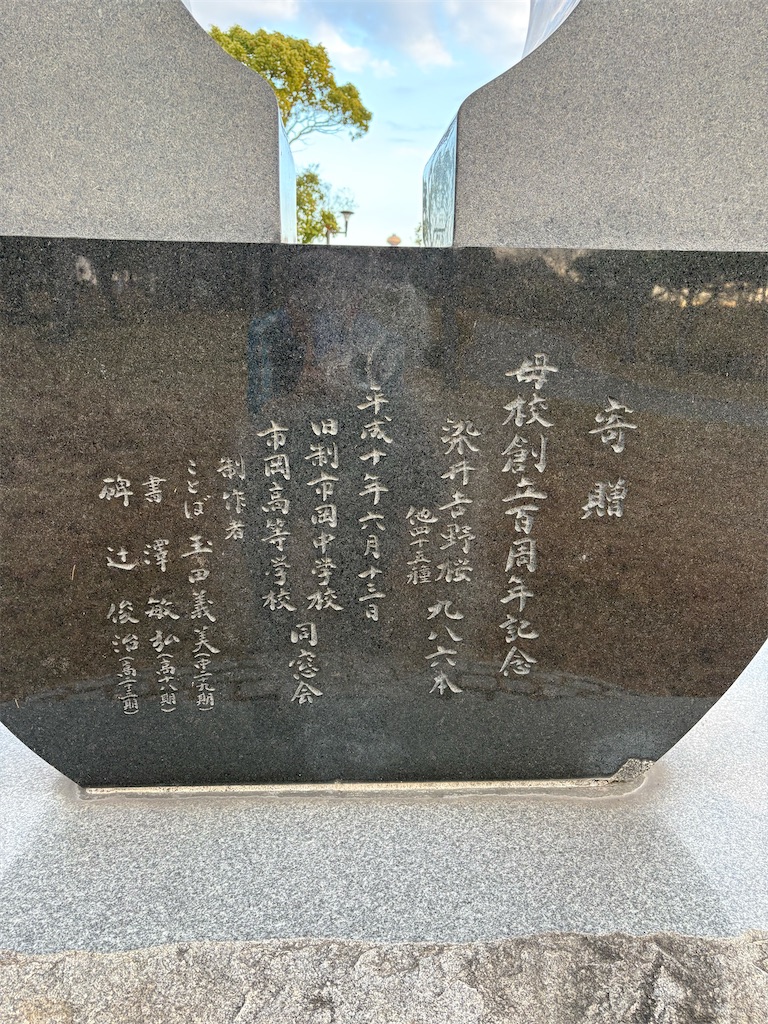 寄贈
母校創立百周年記念
染井吉野桜 九八六本
他四十五種
平成十年六月十三日
旧制市岡中学校
市岡高等学校
同窓会
制作者
ことば 玉田義美(中二九期)
書 澤 敏弘(高十八期)
碑 辻 俊治(高十三期)